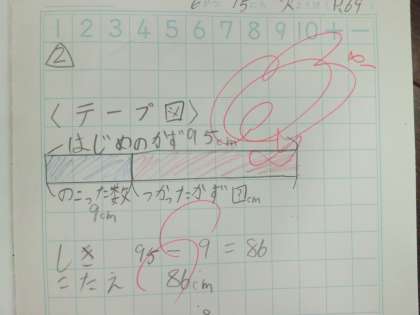 1 2 3 4 5 6 7 8 9 10 + −
2
〈テープ図〉
はじめのかず95cm
のこった数 つかったかず□cm
9cm
しき 95 − 9 = 86
こたえ 86cm